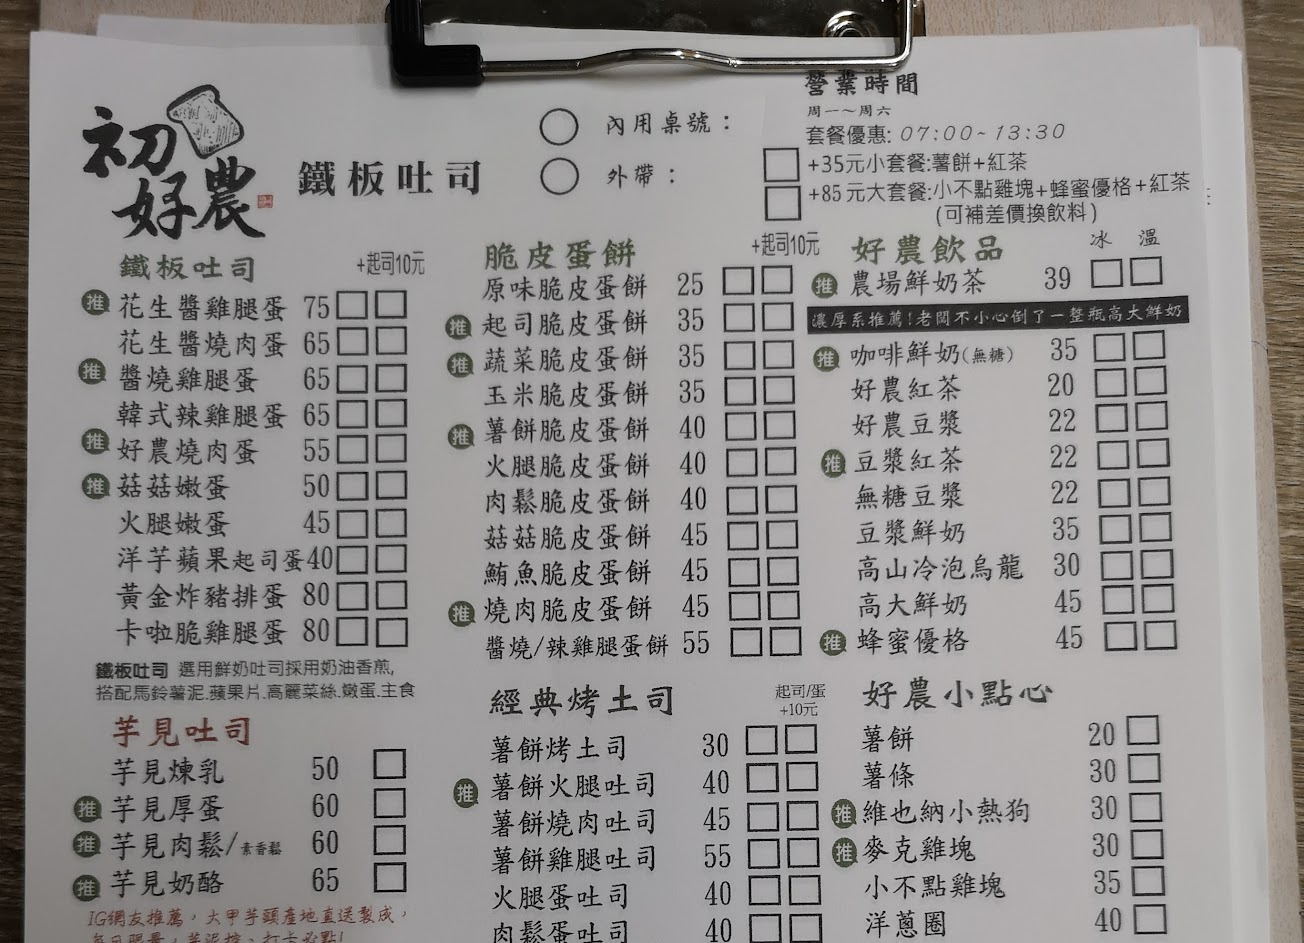 初好農
鐵板吐司
內用桌號：
外帶：
營業時間
周一～周六
套餐優惠: 07:00~13:30
+35元小套餐:薯餅+紅茶
+85元大套餐:小不點雞塊+蜂蜜優格+紅茶
(可補差價換飲料)
鐵板吐司 +起司10元
推 花生醬雞腿蛋 75
花生醬燒肉蛋 65
推 醬燒雞腿蛋 65
韓式辣雞腿蛋 65
推 好農燒肉蛋 55
推 菇菇嫩蛋 50
火腿嫩蛋 45
洋芋蘋果起司蛋 40
黃金炸豬排蛋 80
卡啦脆雞腿蛋 80
鐵板吐司 選用鮮奶吐司採用奶油香煎,
搭配馬鈴薯泥.蘋果片.高麗菜絲.嫩蛋.主食
芋見吐司
芋見煉乳 50
推 芋見厚蛋 60
推 芋見肉鬆/素香鬆 60
推 芋見奶酪 65
IG網友推薦，大甲芋頭產地直送製成，
脆皮蛋餅 +起司10元
原味脆皮蛋餅 25
推 起司脆皮蛋餅 35
推 蔬菜脆皮蛋餅 35
玉米脆皮蛋餅 35
推 薯餅脆皮蛋餅 40
火腿脆皮蛋餅 40
肉鬆脆皮蛋餅 40
菇菇脆皮蛋餅 45
鮪魚脆皮蛋餅 45
推 燒肉脆皮蛋餅 45
醬燒/辣雞腿蛋餅 55
經典烤土司 起司/蛋
+10元
薯餅烤土司 30
推 薯餅火腿吐司 40
薯餅燒肉吐司 45
薯餅雞腿吐司 55
火腿蛋吐司 40
肉鬆蛋吐司 40
好農飲品 冰 溫
推 農場鮮奶茶 39
濃厚系推薦!老闆不小心倒了一整瓶高大鮮奶
推 咖啡鮮奶(無糖) 35
好農紅茶 20
好農豆漿 22
推 豆漿紅茶 22
無糖豆漿 22
豆漿鮮奶 35
高山冷泡烏龍 30
高大鮮奶 45
推 蜂蜜優格 45
好農小點心
薯餅 20
薯條 30
推 維也納小熱狗 30
推 麥克雞塊 30
小不點雞塊 35
洋蔥圈 40